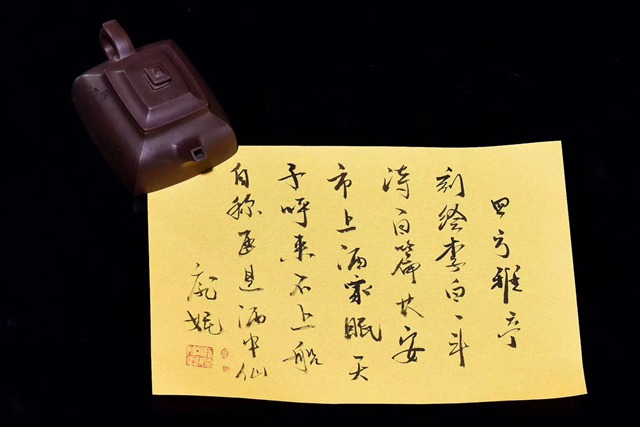 四方雅亭
刻绘李白一斗
诗百篇长安
市上酒家眠天
子呼来不上船
自称臣是酒中仙